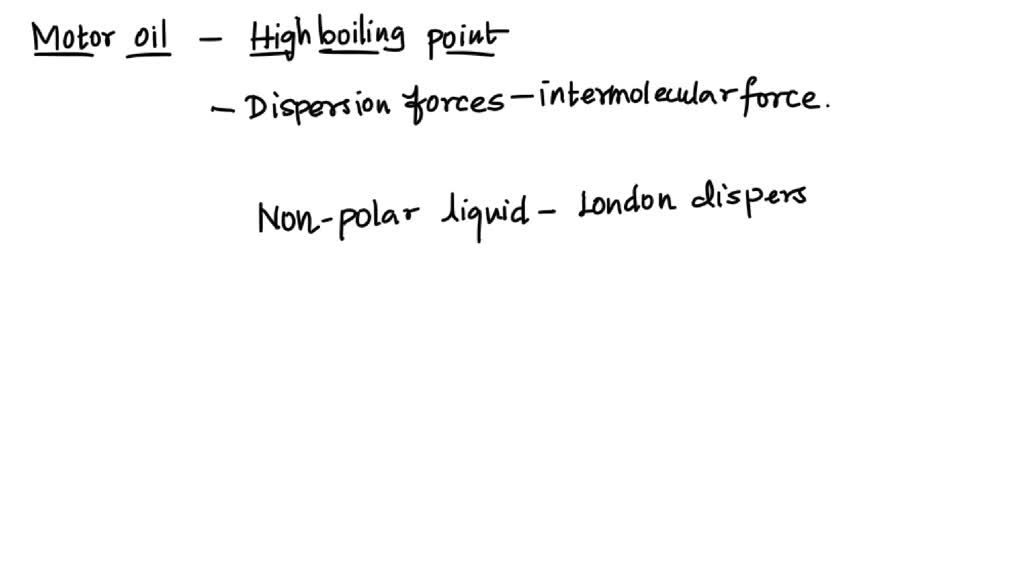 Motor oil - High boiling point
- Dispersion forces - intermolecular force.
Non-polar liquid - London dispers